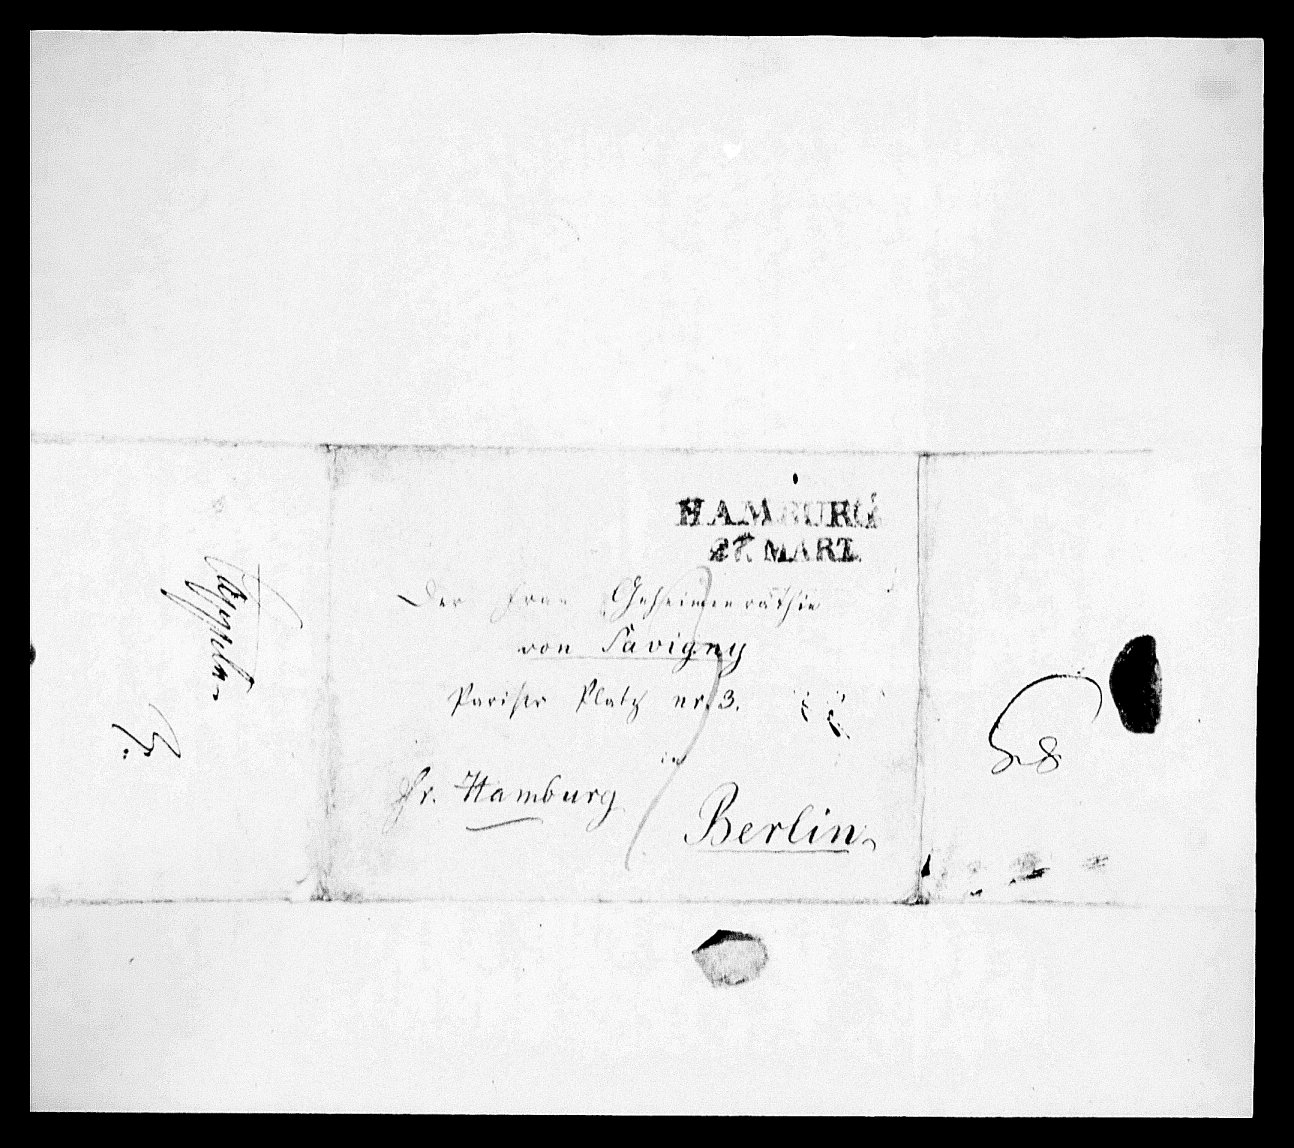 HAMBURG
27. MART.
Der Frau Geheimenräthin
von Savigny
Pariser Platz nr. 3.
in
fr. Hamburg
Berlin